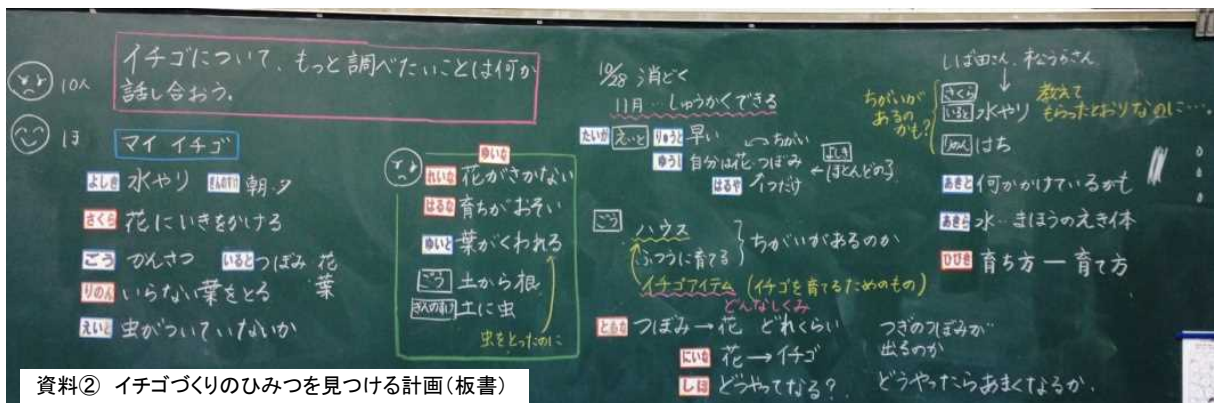 10人
ほ
イチゴについて、もっと調べたいことは何か
話し合おう。
マイ イチゴ
よしき 水やり きんのすけ 朝・夕
さくら 花にいきをかける
ごう かんさつ いると つぼみ 花
葉
りのん いらない葉をとる
えいと 虫がついていないか
ゆいな
れいな 花がさかない
はるな 育ちがおそい
ゆいと 葉がくわれる
ごう 土から根
きんのすけ 土に虫
虫をとったのに
10/28 消どく
11月…しゅうかくできる
たいが えいと りゅうと 早い
ちがい
ゆうし 自分は花・つぼみ ← よしき ほとんどの子
はるや 1つだけ
ごう ハウス
ふつうに育てる
ちがいがあるのか
イチゴアイテム (イチゴを育てるためのもの)
どんなしくみ
ともな つぼみ→花 どれくらい
にいな 花→イチゴ
しほ どうやってなる?
つぎのつぼみが
出るのか
どうやったらあまくなるか.
しば田さん、松うらさん
ちがいが
あるの
かも?
さくら
いると 水やり
教えて
もらったとおりなのに……
りのん はち
あきと 何かかけているかも
あきら 水…まほうのえき体
ひびき 育ち方ー育て方
資料② イチゴづくりのひみつを見つける計画(板書)